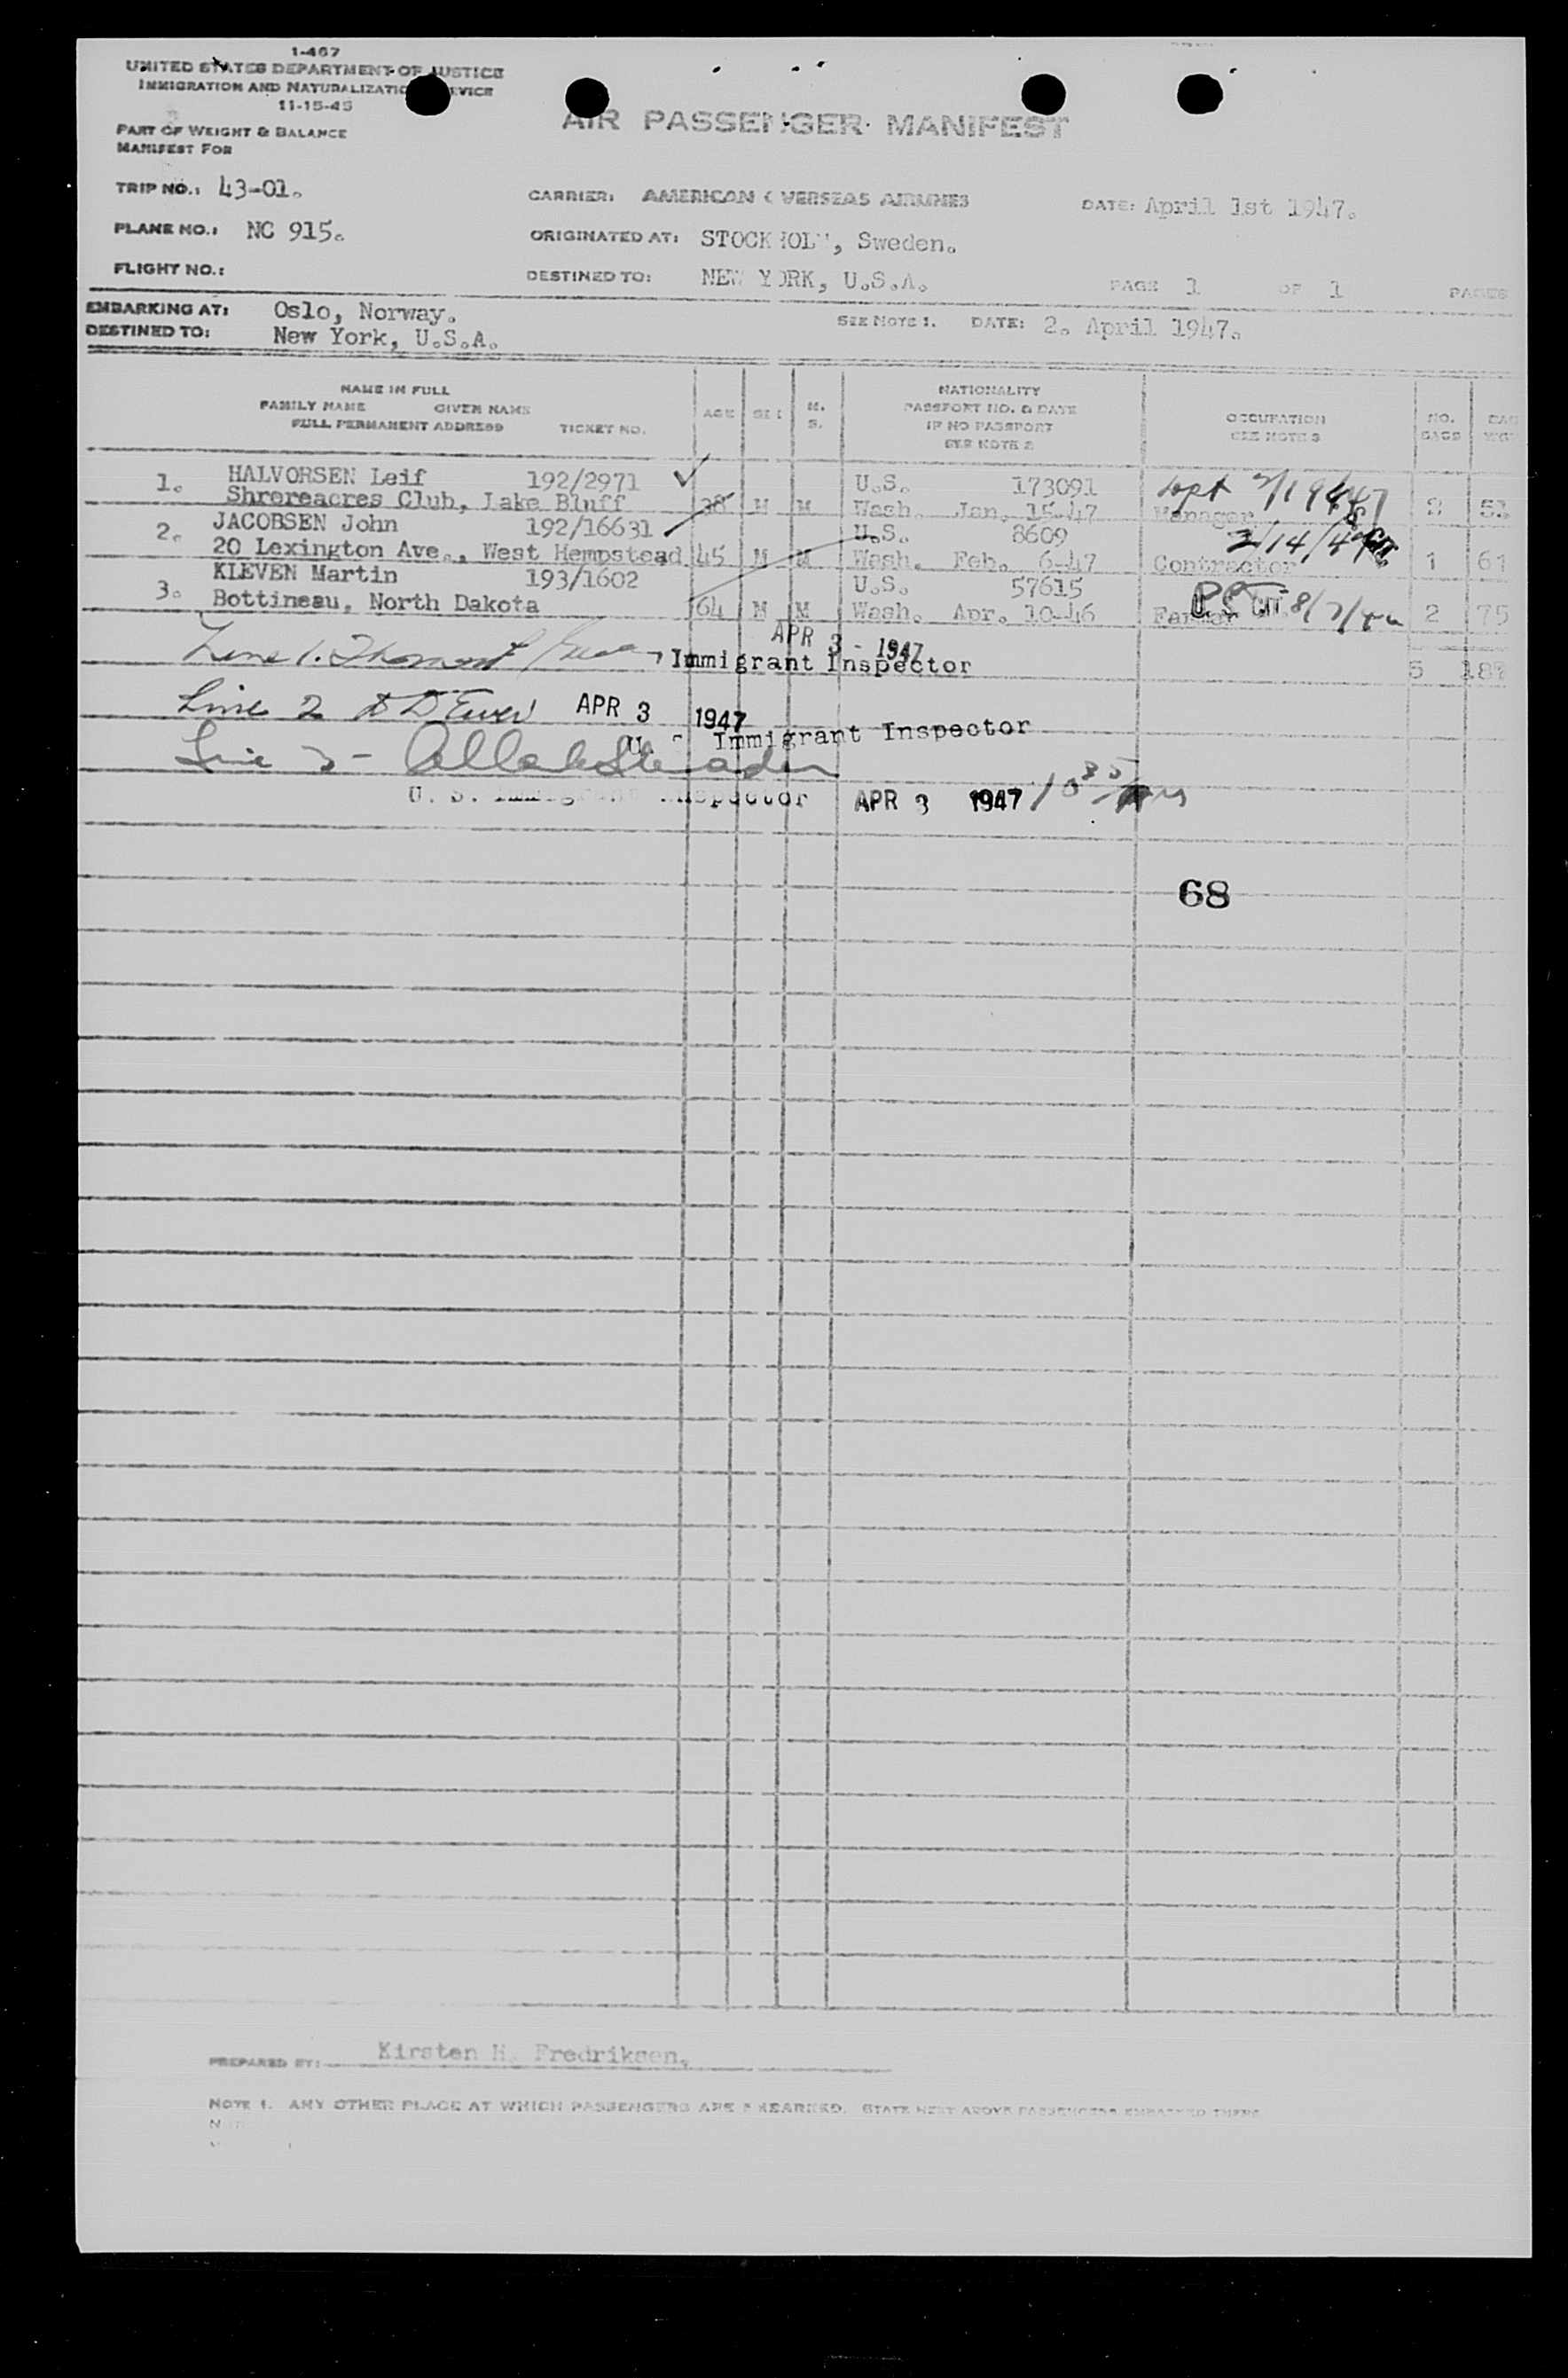 1-467
UNITED STATES DEPARTMENT OF JUSTICE
IMMIGRATION AND NATURALIZATION SERVICE
11-15-45
AIR PASSENGER MANIFEST
PART OF WEIGHT & BALANCE
MANIFEST FOR
TRIP NO.: 43-01.
CARRIER: AMERICAN OVERSEAS AIRLINES
DATE: April 1st 1947.
PLANE NO.: NC 915.
ORIGINATED AT: STOCKHOLM, Sweden.
FLIGHT NO.:
DESTINED TO: NEW YORK, U.S.A.
PAGE 1 OF 1 PAGES
EMBARKING AT: Oslo, Norway.
SEE NOTE 1. DATE: 2. April 1947.
DESTINED TO: New York, U.S.A.
NAME IN FULL
FAMILY NAME GIVEN NAME
FULL PERMANENT ADDRESS TICKET NO.
AGE SEX M. S.
NATIONALITY
PASSPORT NO. & DATE
IF NO PASSPORT
SEE NOTE 2
OCCUPATION
SEE NOTE 3
NO. BAGS
1. HALVORSEN Leif 192/2971 U.S. 173091
Shroreacres Club, Lake Bluff 38 M M Wash. Jan. 15-47 Manager
2. JACOBSEN John 192/16631 U.S. 8609 2/14/47
20 Lexington Ave., West Hempstead 45 M M Wash. Feb. 6-47 Contractor 1 61
3. KLEVEN Martin 193/1602 U.S. 57615
Bottineau, North Dakota 64 M M Wash. Apr. 10-46 Farmer 2 75
APR 3 - 1947
Line 1. Immigrant Inspector 5 187
Line 2 APR 3 1947
U. S. Immigrant Inspector
Line 3 -
U. S. Immigrant Inspector APR 3 1947
68
PREPARED BY: Kirsten H. Fredriksen.
NOTE 1. ANY OTHER PLACE AT WHICH PASSENGERS ARE EMBARKED. STATE NEXT ABOVE PASSENGERS EMBARKED THERE